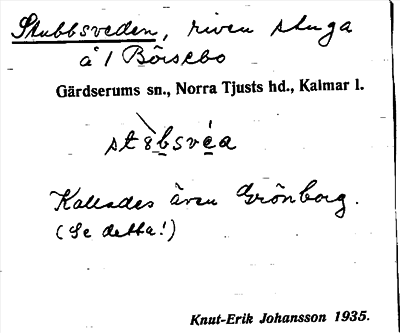 Stubbsveden, riven stuga
å 1 Börsebo
Gärdserums sn., Norra Tjusts hd., Kalmar l.
Kallades även Grönborg.
(Se detta!)
Knut-Erik Johansson 1935.